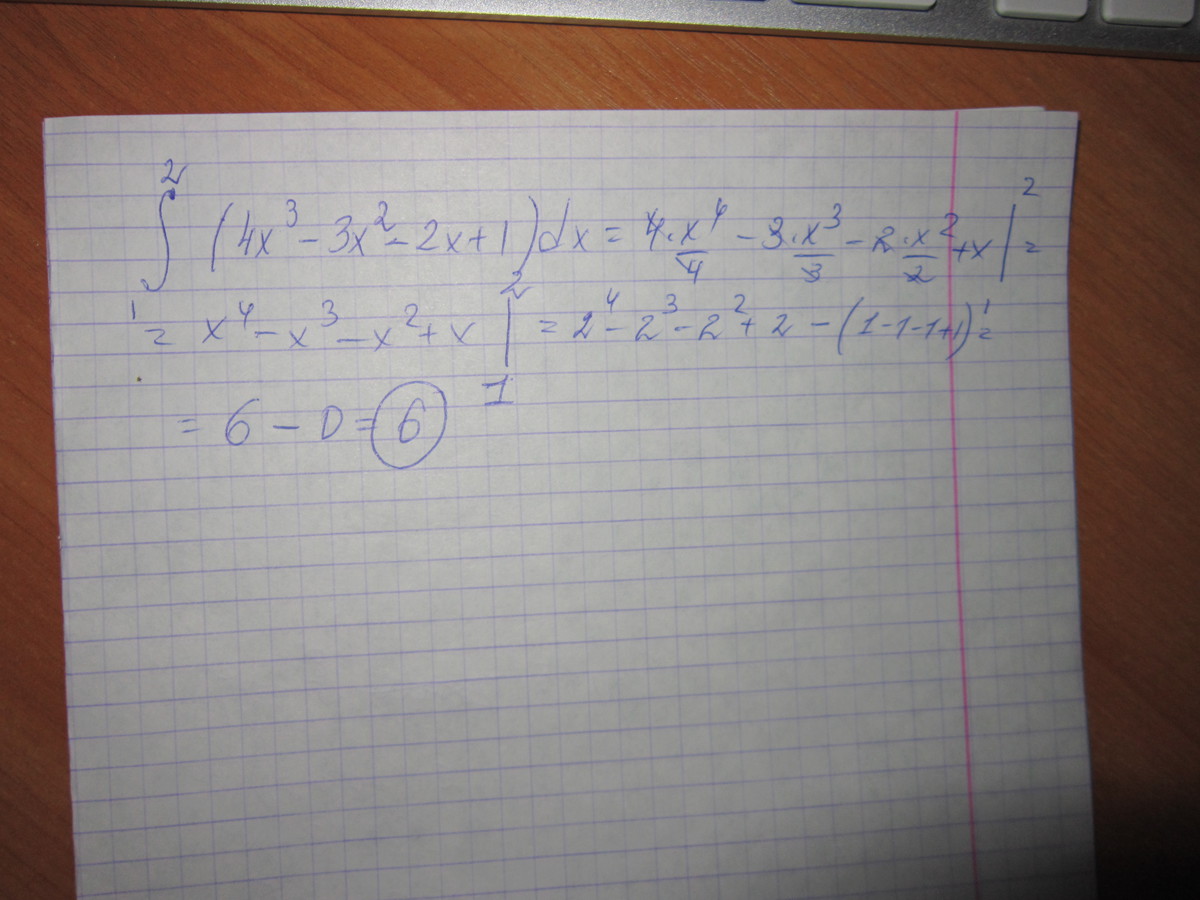 ∫₁² (4x³ - 3x² - 2x + 1) dx = 4·x⁴/4 - 3·x³/3 - 2·x²/2 + x |₁² =
= x⁴ - x³ - x² + x |₁² = 2⁴ - 2³ - 2² + 2 - (1-1-1+1) =
= 6 - 0 = 6